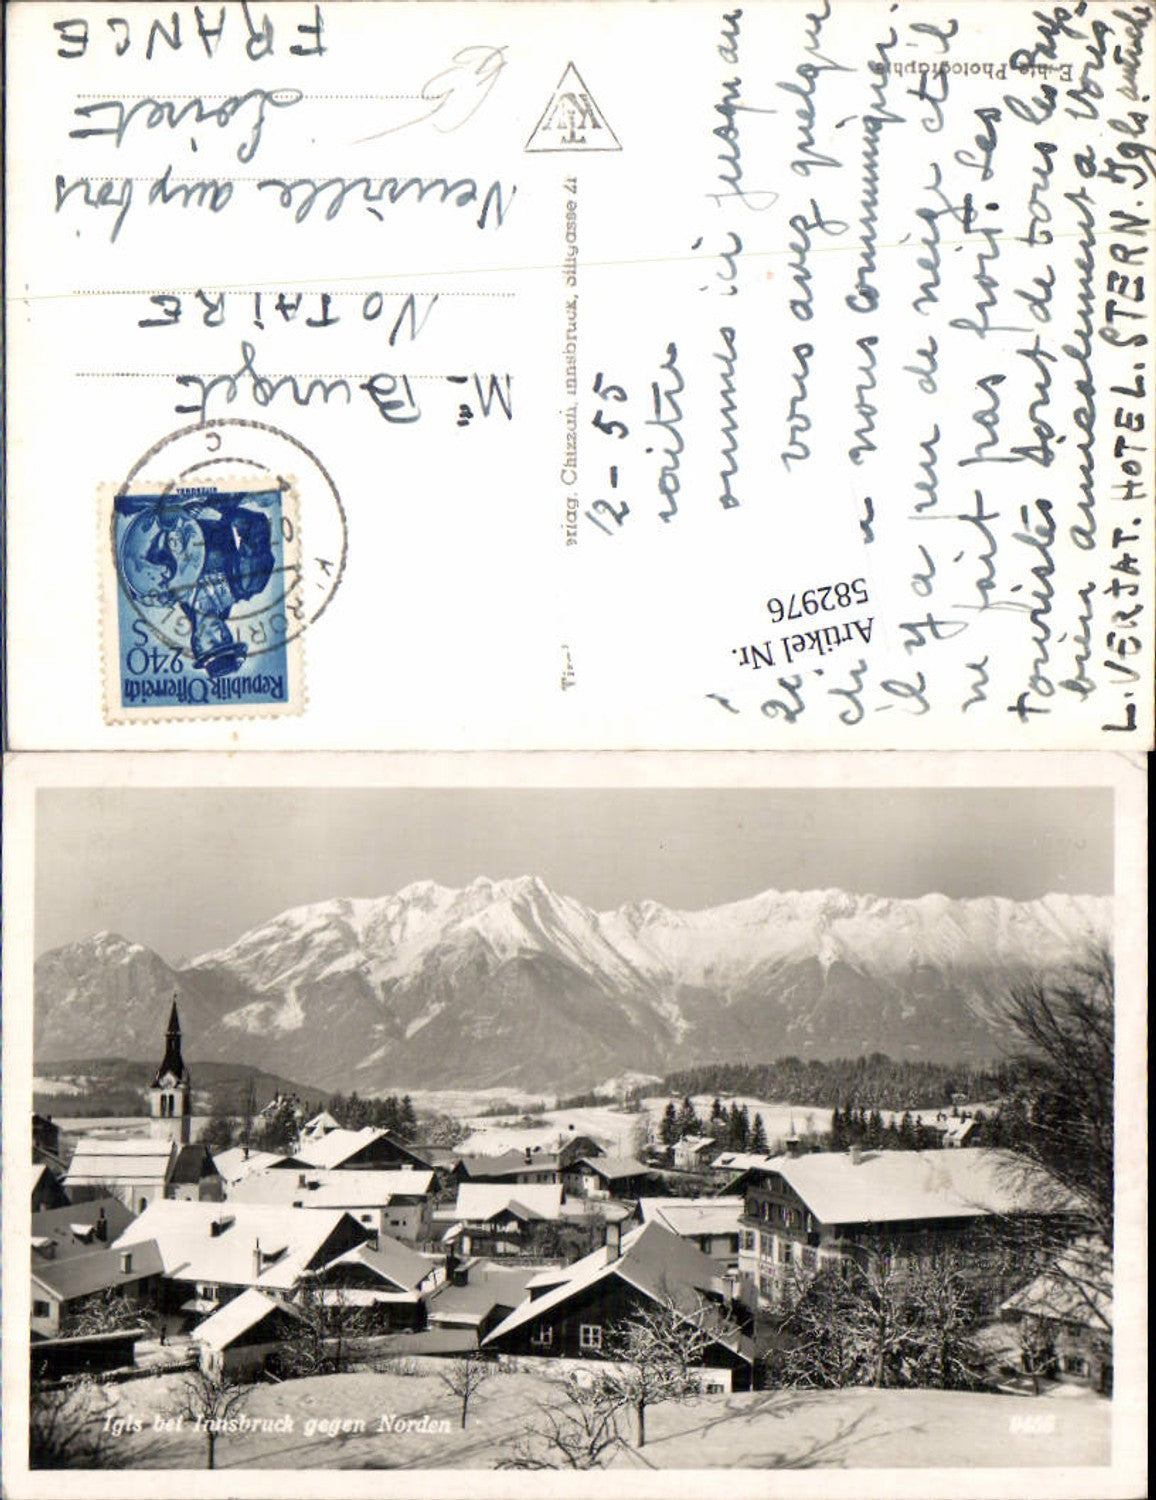 12-55
ommes ici jusqu'au
vous avez quelque
à nous communiquer.
il y a peu de neige et il
ne fait pas froid. Les
touristes sont de tous les Pays
bien amicalement à vous
L. VERJAT. HOTEL. STERN. Igls autriche
Echte Photographie
Artikel Nr.
582976
Chizzali, Innsbruck, Sillgasse 21
Republik Österreich
2·40
S
IGLS
Mr. Burget
NOTAIRE
Neuville aux bois
Loiret
FRANCE
Igls bei Innsbruck gegen Norden
9466